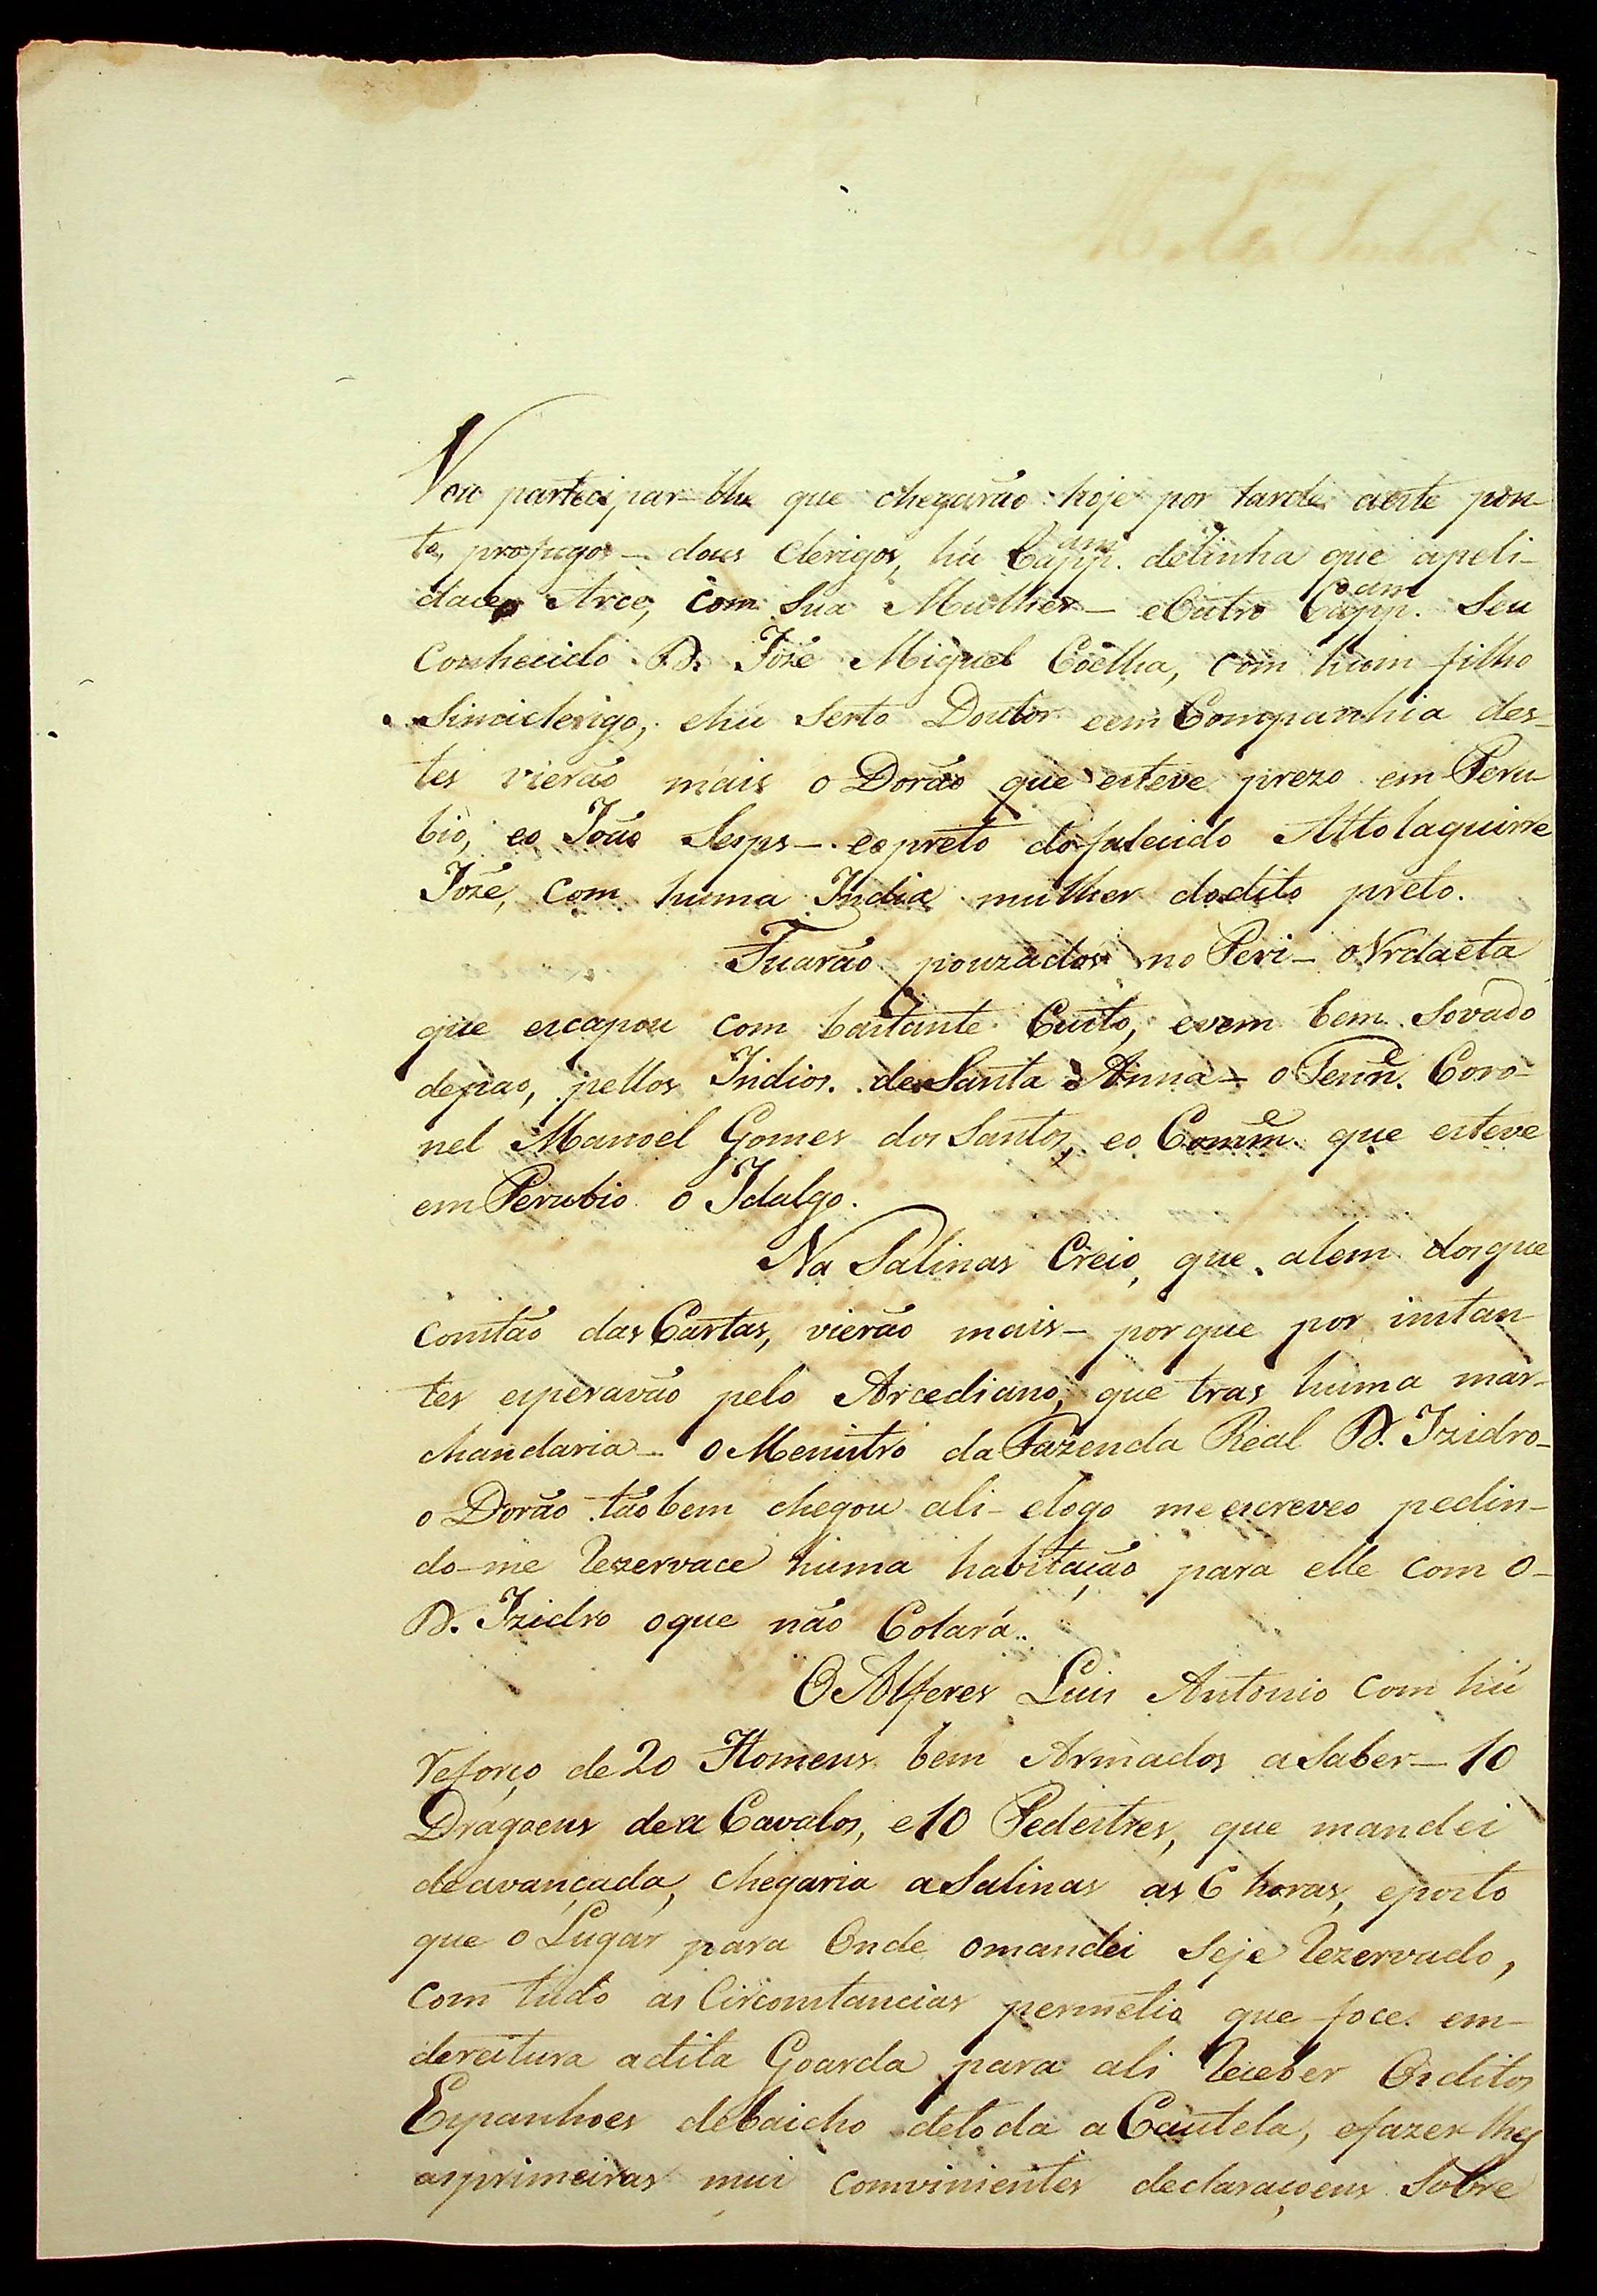 Vou partecipar-lhe que chegarão hoje por tarde aeste pon-
to, profugos — dous Clerigos, hũ Capp.am delinha que apeli-
dace Arce, com Sua Mulher — eOutro Capp.am Seu
Conhecido D. Joze Miguel Coelha, com hum filho
Simiclerigo, ehũ Serto Doutor eem Companhia des-
tes vierão mais o Dorão que esteve prezo em Peru
bio, eo João — eopreto dofalecido Attolaguirre
Joze, com huma India mulher dodito preto.
Ficarão pouzados no Peri — oVrdaeta
que escapou com bastante Custo, evem bem Sovado
depao, pellos Indios de Santa Anna — o Tenn.e Coro-
nel Manoel Gomes dos Santos, eo Comm.e que esteve
em Perubio o Idalgo.
Na Salinas Creio, que alem dosque
constão das Cartas, vierão mais — porque por instan
tes esperavão pelo Arcediano, que tras huma mar-
chandaria — o Menistro da Fazenda Real D. Izidro —
o Dorão tãobem chegou ali — elogo meescreveo pedin-
do-me Rezervace huma habitação para elle com o —
D. Izidro oque não Colará.
O Alferes Luis Antonio com hũ
reforço de 20 Homens bem Armados aSaber — 10
Dragoens dea Cavalos, e10 Pedestres, que mandei
deavançada, chegaria aSalinas as 6 horas, eposto
que o Lugar para Onde omandei Seje Rezervado,
com tudo as Circomstancias permetio que foce em-
dereitura adita Goarda para ali Receber Osditos
Espanhoes debaicho detoda a Cautela, efazerlhes
asprimeiras mui comvinientes declaraçoens Sobre